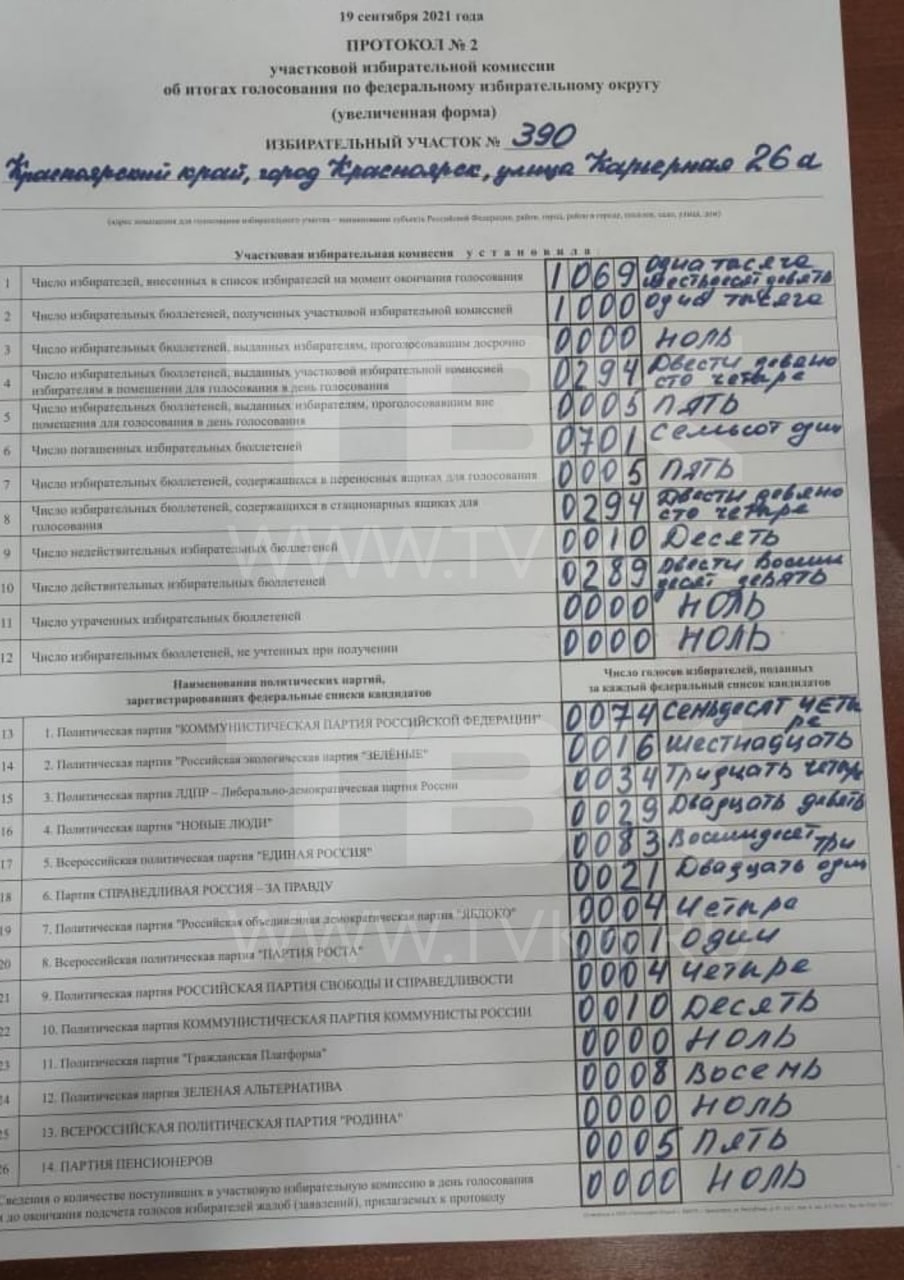 19 сентября 2021 года
ПРОТОКОЛ № 2
участковой избирательной комиссии
об итогах голосования по федеральному избирательному округу
(увеличенная форма)
ИЗБИРАТЕЛЬНЫЙ УЧАСТОК № 390
Красноярский край, город Красноярск, улица Карьерная 26 а
(адрес помещения для голосования избирательного участка – наименование субъекта Российской Федерации, район, город, район в городе, поселок, село, улица, дом)
Участковая избирательная комиссия установила:
1 Число избирателей, внесенных в список избирателей на момент окончания голосования 1069 одна тысяча шестьдесят девять
2 Число избирательных бюллетеней, полученных участковой избирательной комиссией 1000 одна тысяча
3 Число избирательных бюллетеней, выданных избирателям, проголосовавшим досрочно 0000 ноль
4 Число избирательных бюллетеней, выданных участковой избирательной комиссией
избирателям в помещении для голосования в день голосования 0294 Двести девяно
сто четыре
5 Число избирательных бюллетеней, выданных избирателям, проголосовавшим вне
помещения для голосования в день голосования 0005 ПЯТЬ
6 Число погашенных избирательных бюллетеней 0701 Семьсот один
7 Число избирательных бюллетеней, содержащихся в переносных ящиках для голосования 0005 ПЯТЬ
8 Число избирательных бюллетеней, содержащихся в стационарных ящиках для
голосования 0294 Двести девяно
сто четыре
9 Число недействительных избирательных бюллетеней 0010 Десять
10 Число действительных избирательных бюллетеней 0289 Двести Восемь
десят девять
11 Число утраченных избирательных бюллетеней 0000 НОЛЬ
12 Число избирательных бюллетеней, не учтенных при получении 0000 НОЛЬ
Наименования политических партий,
зарегистрировавших федеральные списки кандидатов
Число голосов избирателей, поданных
за каждый федеральный список кандидатов
13 1. Политическая партия "КОММУНИСТИЧЕСКАЯ ПАРТИЯ РОССИЙСКОЙ ФЕДЕРАЦИИ" 0074 Семьдесят четы
ре
14 2. Политическая партия "Российская экологическая партия "ЗЕЛЁНЫЕ" 0016 шестнадцать
15 3. Политическая партия ЛДПР – Либерально-демократическая партия России 0034 Тридцать четыре
16 4. Политическая партия "НОВЫЕ ЛЮДИ" 0029 Двадцать девять
17 5. Всероссийская политическая партия "ЕДИНАЯ РОССИЯ" 0083 Восемьдесят три
18 6. Партия СПРАВЕДЛИВАЯ РОССИЯ – ЗА ПРАВДУ 0021 Двадцать один
19 7. Политическая партия "Российская объединенная демократическая партия "ЯБЛОКО" 0004 Четыре
20 8. Всероссийская политическая партия "ПАРТИЯ РОСТА" 0001 Один
21 9. Политическая партия РОССИЙСКАЯ ПАРТИЯ СВОБОДЫ И СПРАВЕДЛИВОСТИ 0004 Четыре
22 10. Политическая партия КОММУНИСТИЧЕСКАЯ ПАРТИЯ КОММУНИСТЫ РОССИИ 0010 Десять
23 11. Политическая партия "Гражданская Платформа" 0000 НОЛЬ
24 12. Политическая партия ЗЕЛЕНАЯ АЛЬТЕРНАТИВА 0008 Восемь
25 13. ВСЕРОССИЙСКАЯ ПОЛИТИЧЕСКАЯ ПАРТИЯ "РОДИНА" 0000 НОЛЬ
26 14. ПАРТИЯ ПЕНСИОНЕРОВ 0005 Пять
Сведения о количестве поступивших в участковую избирательную комиссию в день голосования
и до окончания подсчета голосов избирателей жалоб (заявлений), прилагаемых к протоколу 0000 НОЛЬ